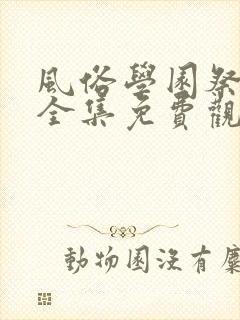 風俗學園祭
全集免費觀
動物園沒有麋